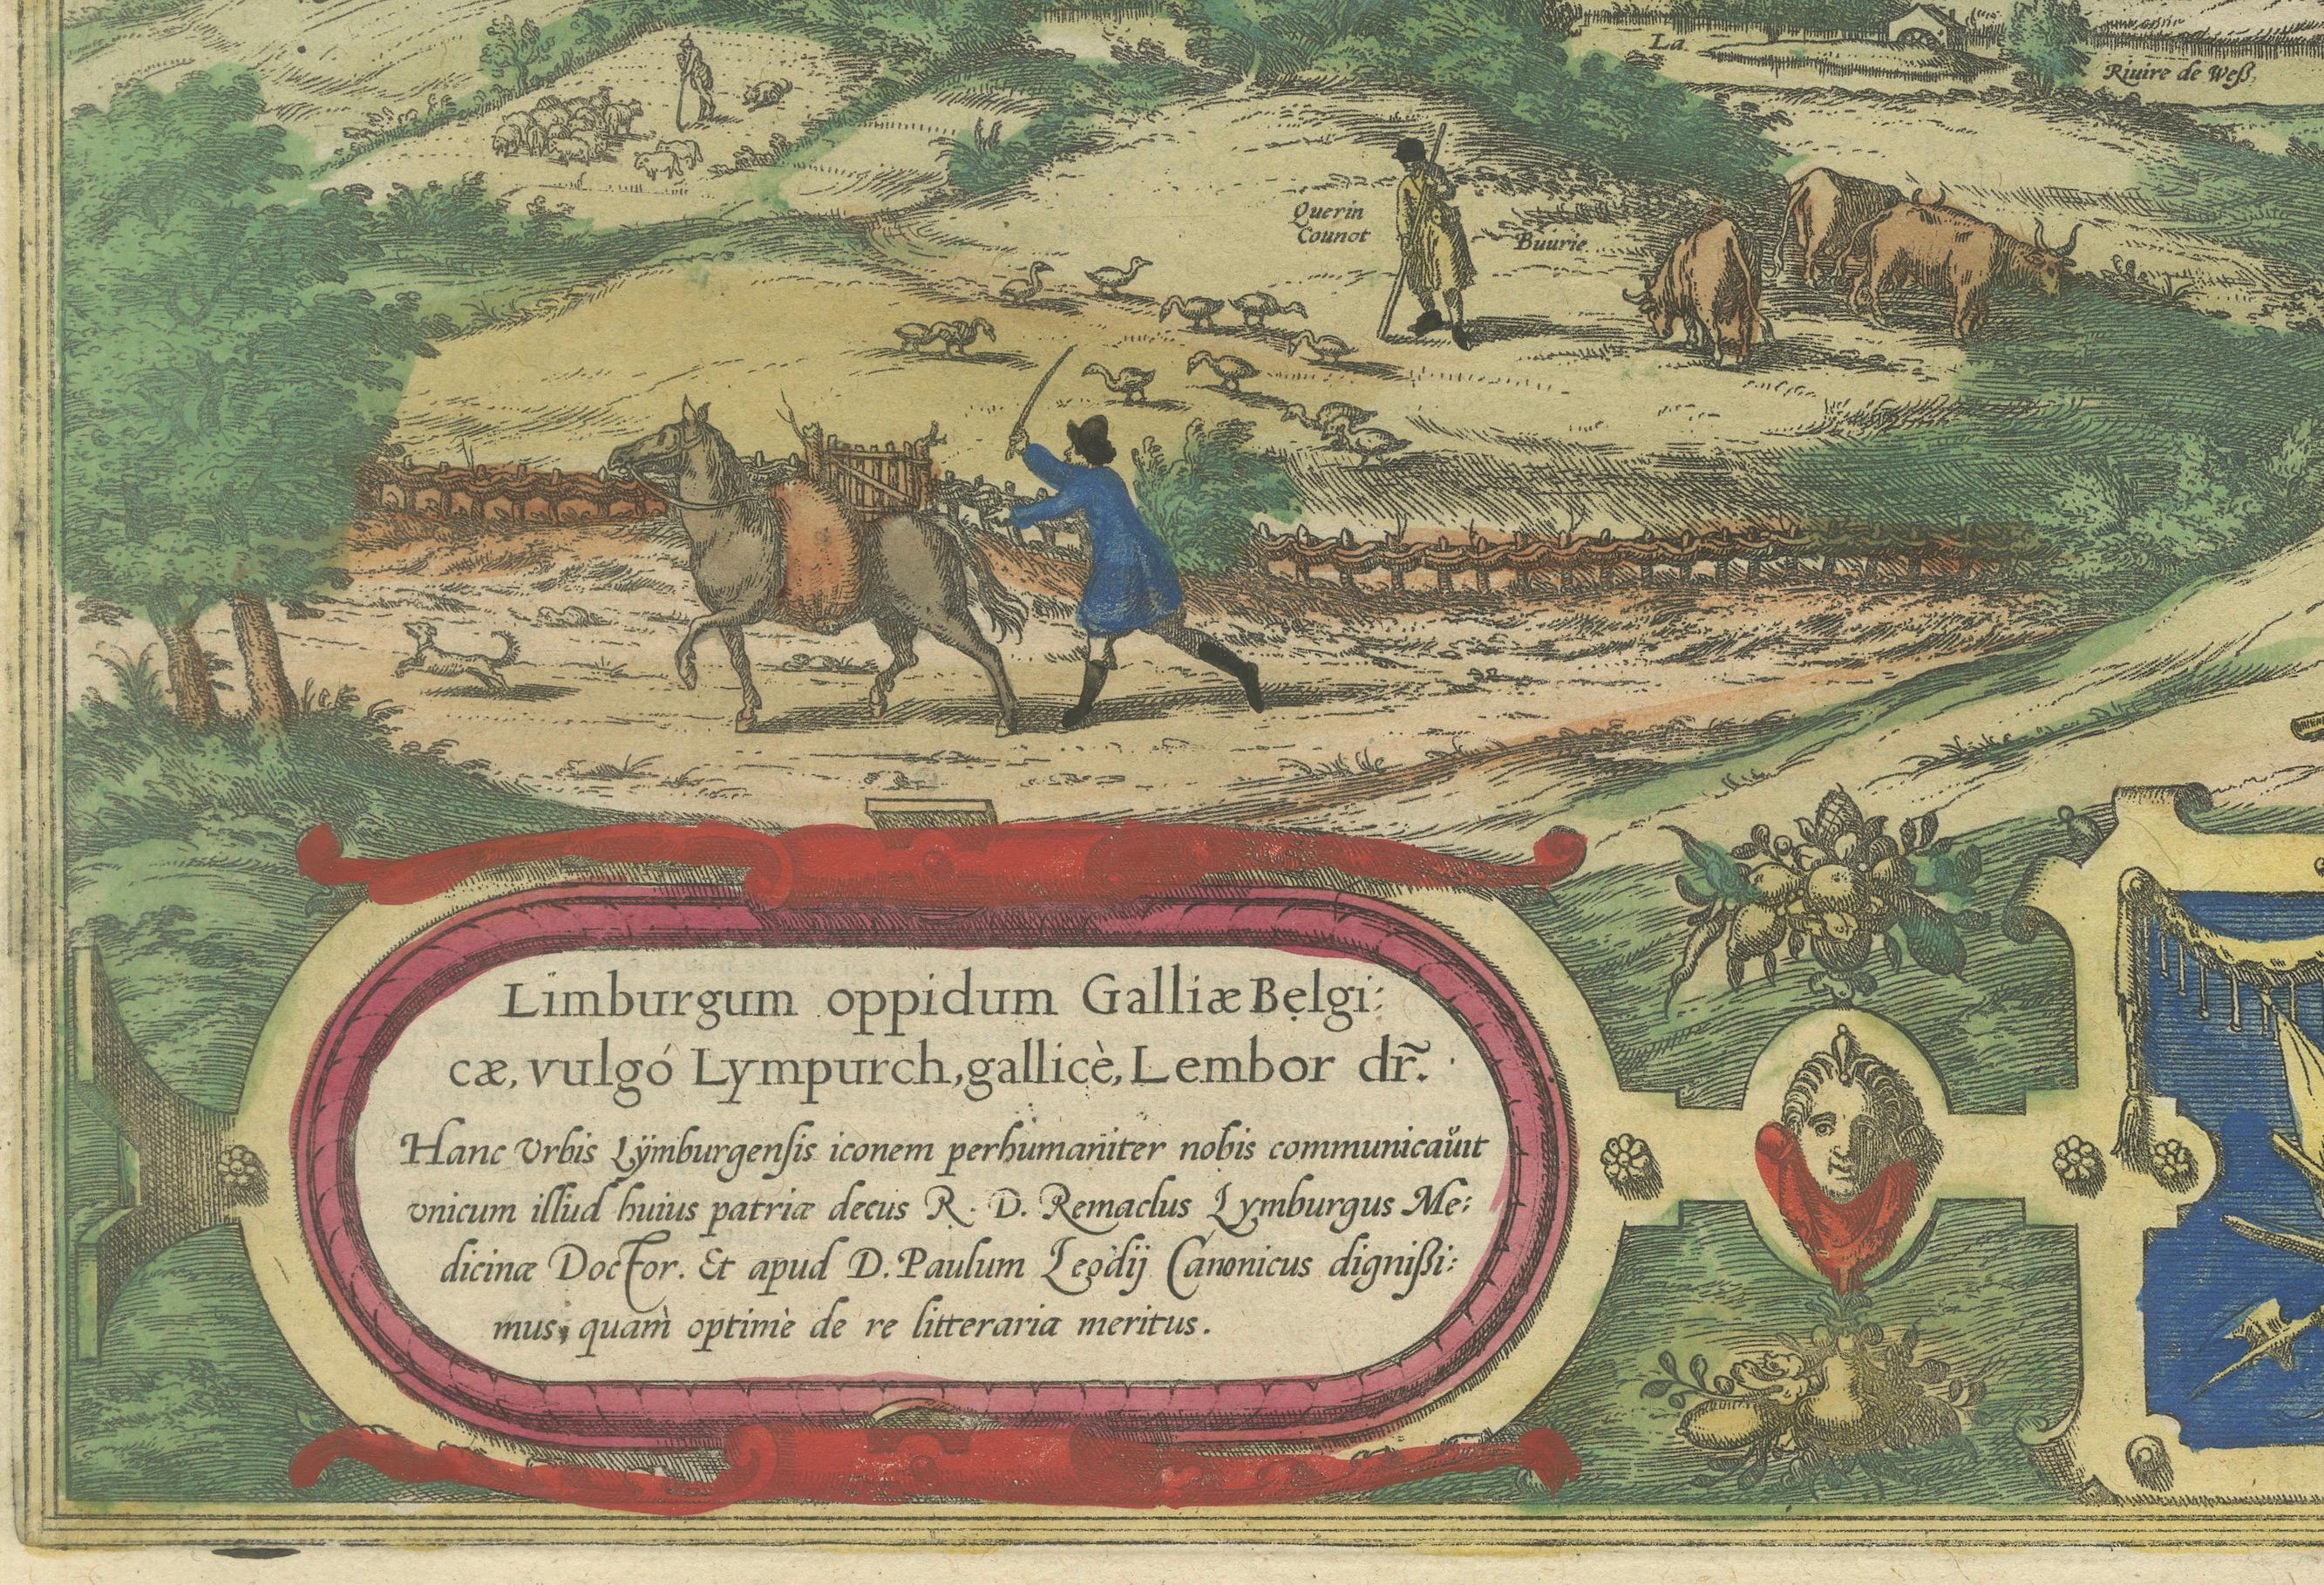 La
Riuire de Weß,
Querin
Counot
Buurie.
Limburgum oppidum Galliæ Belgi:
cæ, vulgó Lympurch, gallicè, Lembor dr̃.
Hanc Vrbis Lÿmburgensis iconem perhumaniter nobis communicaŭit
vnicum illud huius patriæ decus R. D. Remaclus Lymburgus Me:
dicinæ Doctor. Et apud D. Paulum Leodij Canonicus dignißi:
mus; quàm optimè de re litteraria meritus.